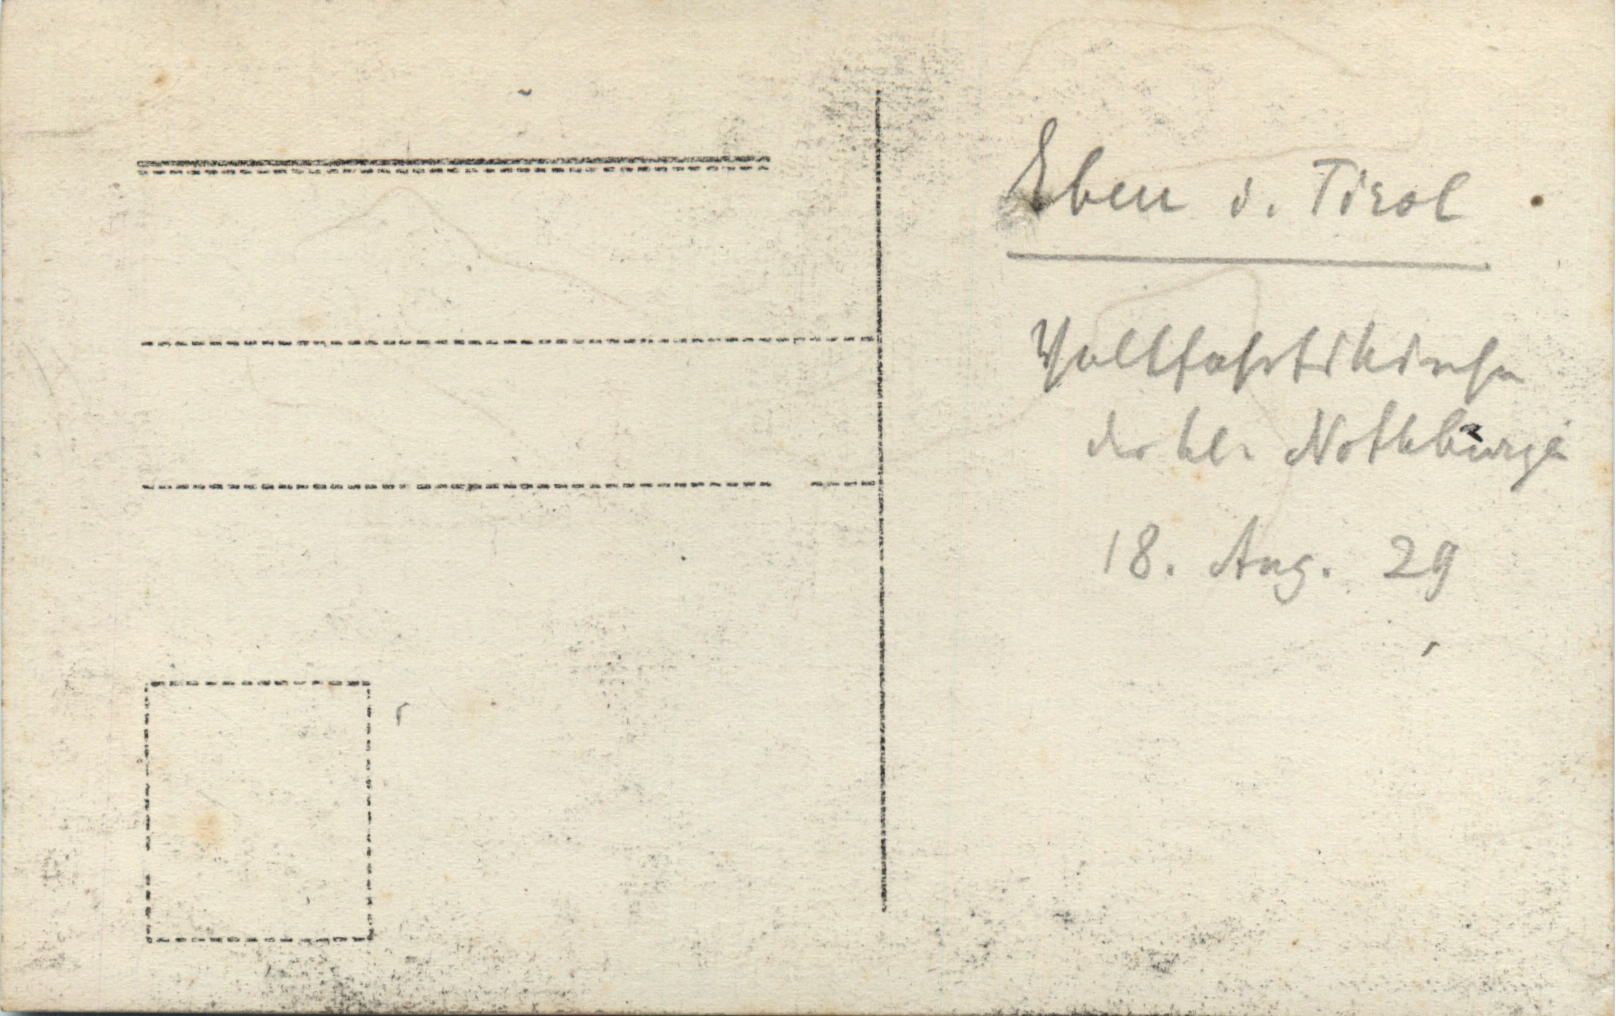 Eben i. Tirol
Wallfahrtskirche
der hl. Nothburga
18. Aug. 29